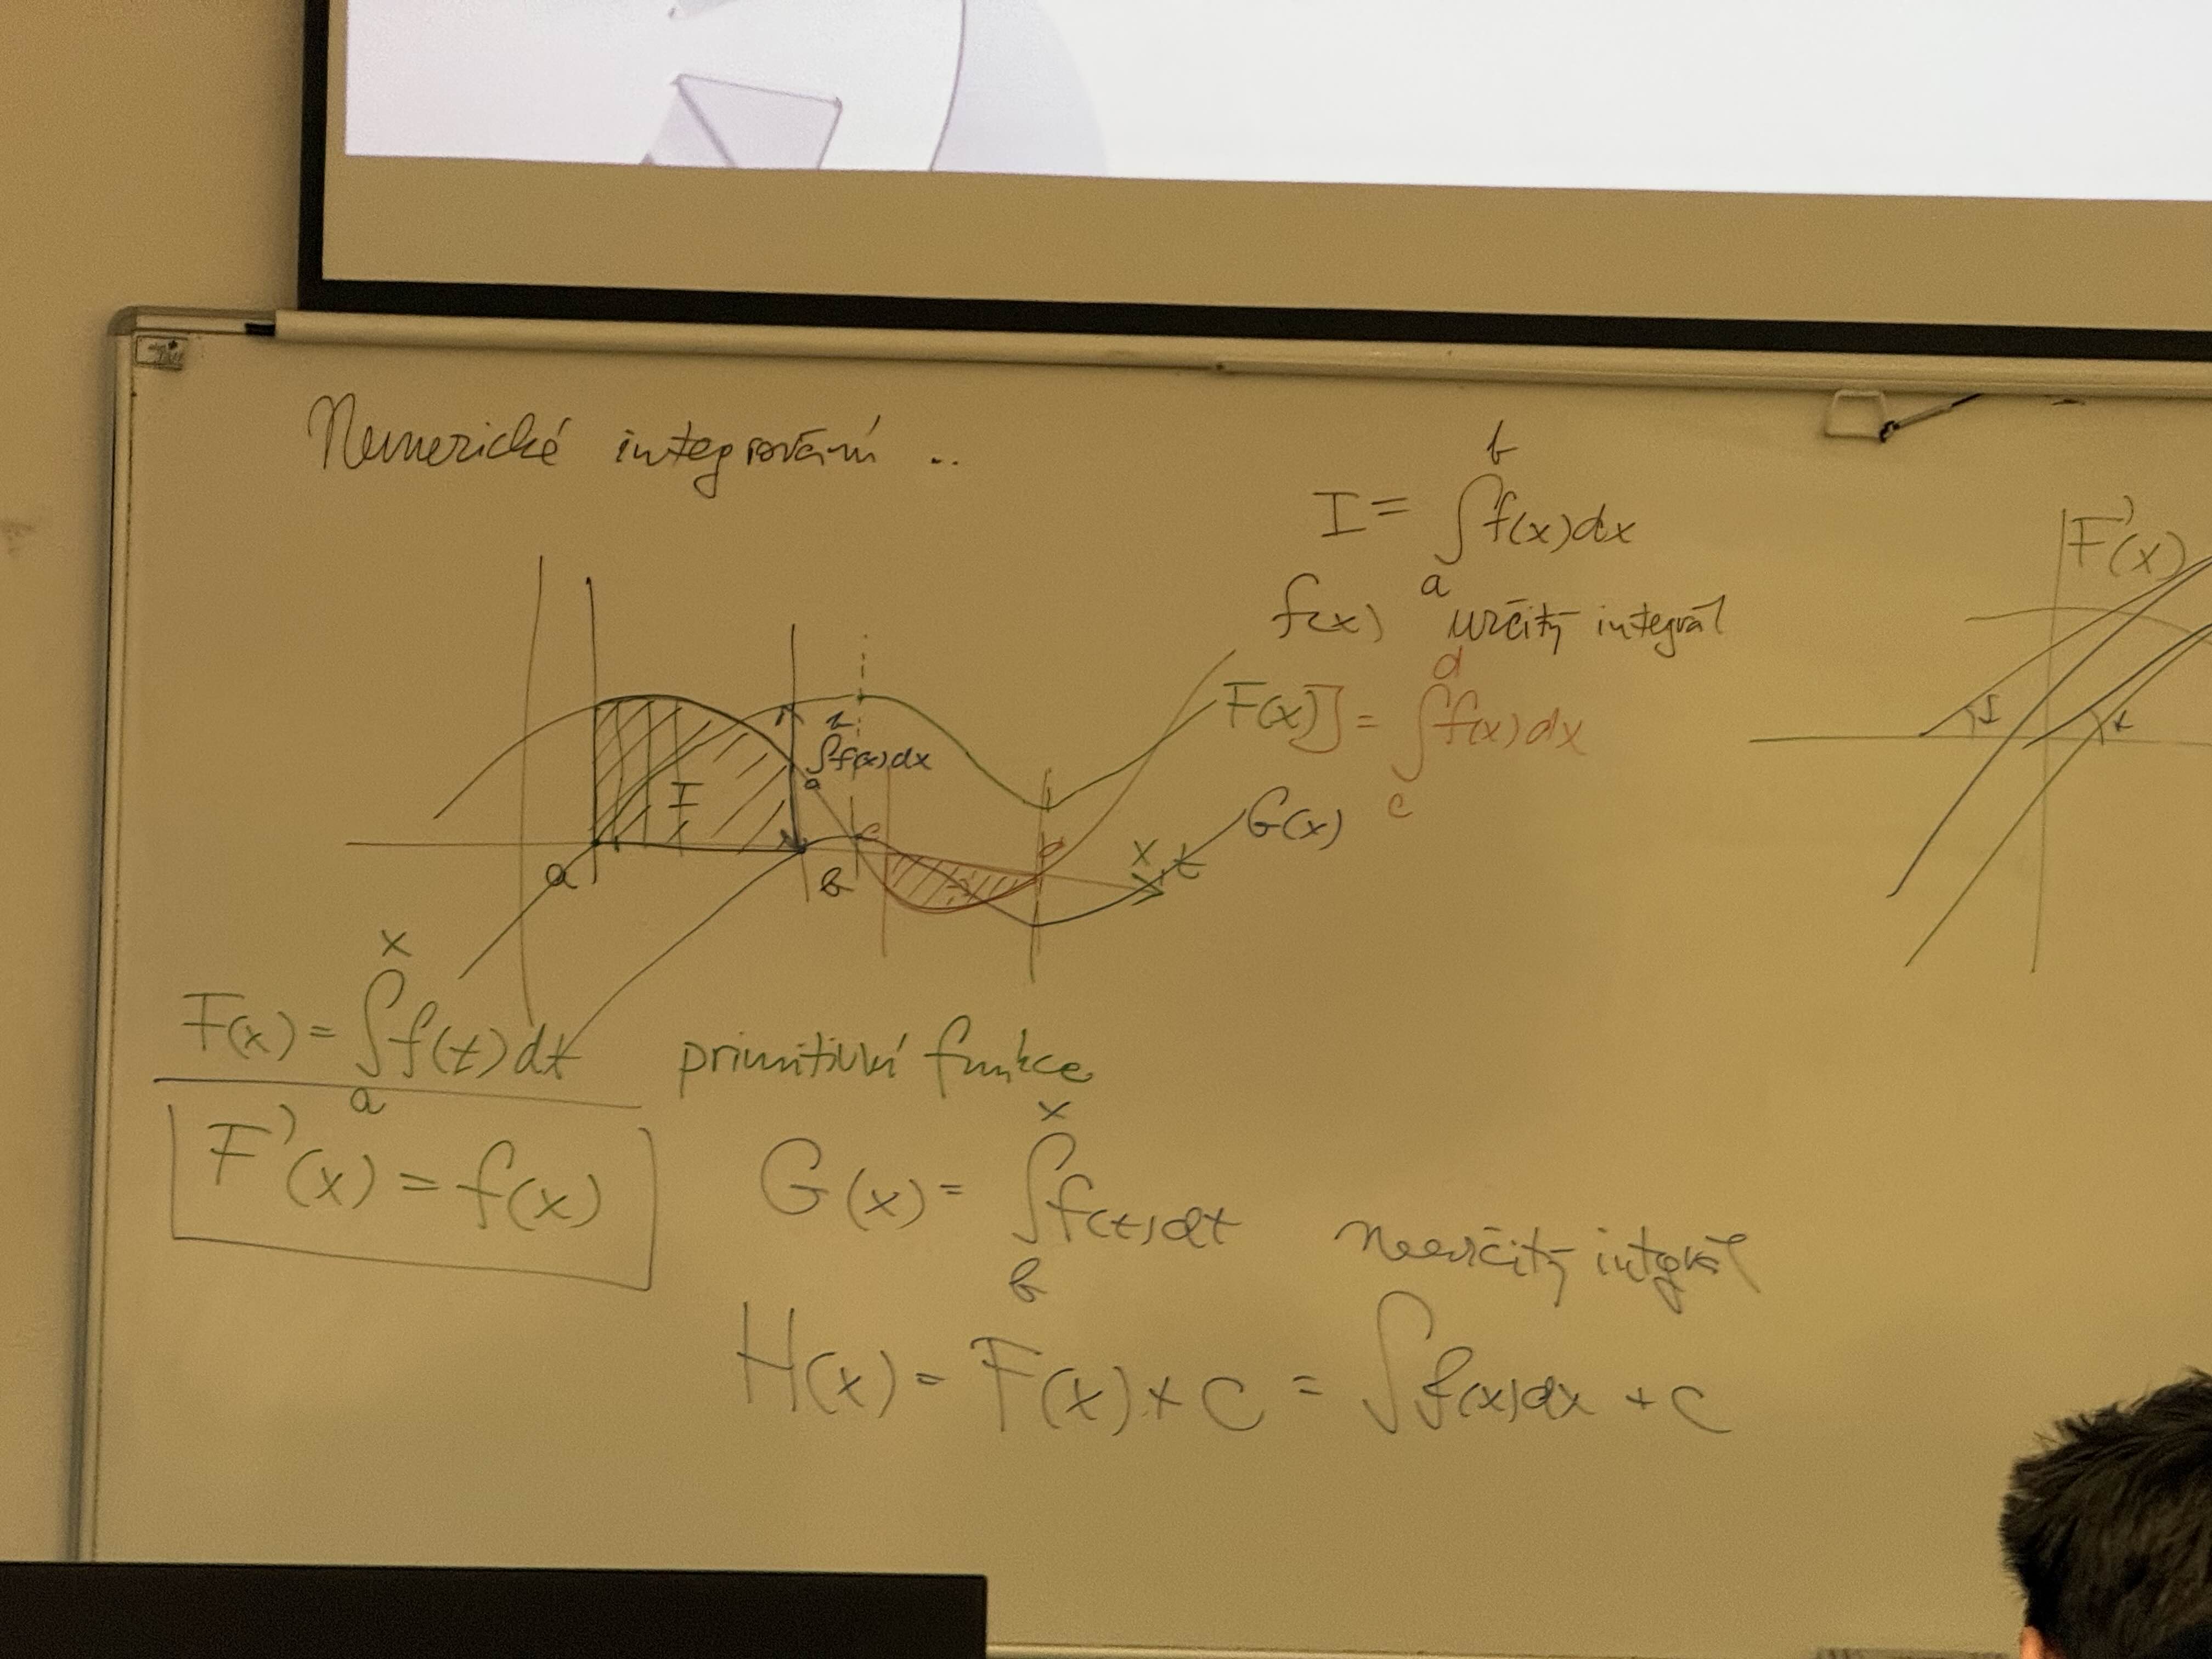 Numerické integrování ..
I = ∫_a^b f(x)dx
f(x) určitý integrál
F(x) J = ∫_c^d f(x)dx
G(x)
∫_a^b f(x)dx
I
a
b
c
d
x, t
F'(x)
F(x) = ∫_a^x f(t)dt primitivní funkce
F'(x) = f(x)
G(x) = ∫_b^x f(t)dt neurčitý integrál
H(x) = F(x) + C = ∫f(x)dx + C